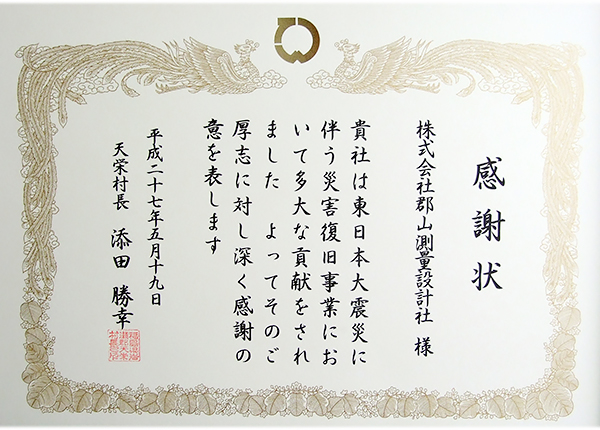 感謝状
株式会社郡山測量設計社 様
貴社は東日本大震災に
伴う災害復旧事業にお
いて多大な貢献をされ
ました よってそのご
厚志に対し深く感謝の
意を表します
平成二十七年五月十九日
天栄村長 添田 勝幸